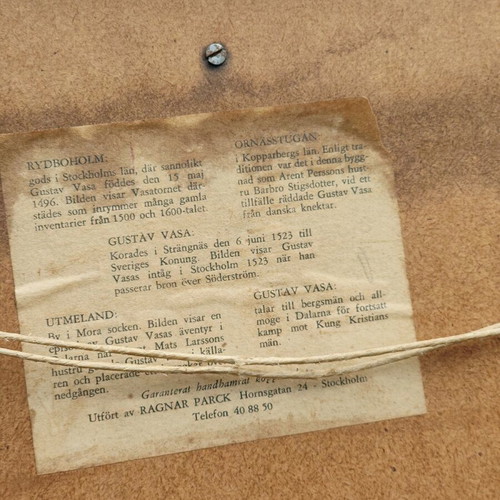 RYDBOHOLM:
gods i Stockholms län, där sannolikt
Gustav Vasa föddes den 15 maj
1496. Bilden visar Vasatornet där
städes som inrymmer många gamla
inventarier från 1500 och 1600-talet.
ORNÄSSTUGAN:
i Kopparbergs län. Enligt tra-
ditionen var det i denna bygg-
nad som Arent Perssons hust-
ru Barbro Stigsdotter, vid ett
tillfälle räddade Gustav Vasa
från danska knektar.
GUSTAV VASA:
Korades i Strängnäs den 6 juni 1523 till
Sveriges Konung. Bilden visar Gustav
Vasas intåg i Stockholm 1523 när han
passerar bron över Söderström.
UTMELAND:
By i Mora socken. Bilden visar en
Gustav Vasas äventyr i
Mats Larssons
hustru i källa-
ren och placerade över
nedgången.
GUSTAV VASA:
talar till bergsmän och all-
moge i Dalarna för fortsatt
kamp mot Kung Kristians
män.
Garanterat handhamrat
Utfört av RAGNAR PARCK Hornsgatan 24 - Stockholm
Telefon 40 88 50